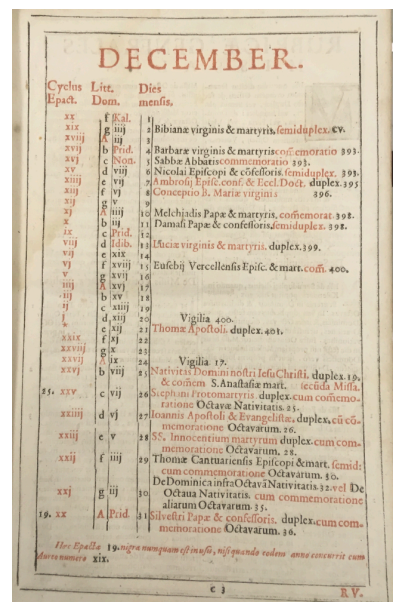 DECEMBER.
Cyclus Litt. Dies
Epact. Dom. mensis.
xx f Kal. 1
xix g iiij 2 Bibianæ virginis & martyris, semiduplex. cv.
xviij A iij 3
xvij b Prid. 4 Barbaræ virginis & martyris commemoratio 393.
xvj c Non. 5 Sabbæ Abbatis commemoratio 393.
xv d viij 6 Nicolai Episcopi & cōfessoris. semiduplex. 393.
xiiij e vij 7 Ambrosij Episc. conf. & Eccl. Doct. duplex. 395
xiij f vj 8 Conceptio B. Mariæ virginis 396.
xij g v 9
xj A iiij 10 Melchiadis Papæ & martyris, comemorat. 398.
x b iij 11 Damasi Papæ & confessoris, semiduplex. 398.
ix c Prid. 12
viij d Idib. 13 Luciæ virginis & martyris. duplex. 399.
vij e xix 14
vj f xviij 15 Eusebij Vercellensis Episc. & mart. com̄. 400.
v g xvij 16
iiij A xvj 17
iij b xv 18
ij c xiiij 19
j d xiij 20 Vigilia 400.
* e xij 21 Thomæ Apostoli. duplex. 401.
xxix f xj 22
xxviij g x 23
xxvij A ix 24 Vigilia 17.
xxvj b viij 25 Nativitas Domini nostri Iesu Christi. duplex. 19.
& com̄em S. Anastasiæ mart. in secūda Missa.
25. xxv c vij 26 Stephani Protomartyris. duplex. cum comēmo-
ratione Octavæ Nativitatis. 25.
xxiiij d vj 27 Ioannis Apostoli & Evangelistæ. duplex. cū cō-
memoratione Octavarum. 26.
xxiij e v 28 SS. Innocentium martyrum duplex. cum com-
memoratione Octavarum. 28.
xxij f iiij 29 Thomæ Cantuariensis Episcopi & mart. semid:
cum commemoratione Octavarum. 30.
De Dominica infra Octavā Nativitatis. 32. vel De
xxj g iij 30 Octaua Nativitatis. cum commemoratione
aliarum Octavarum. 35.
19. xx A Prid. 31 Silvestri Papæ & confessoris. duplex. cum com-
memoratione Octavarum. 36.
Hec Epacta 19. nigra numquam est in usu, nisi quando eodem anno concurrit cum
Aureo numero xix.
c 3
R V.